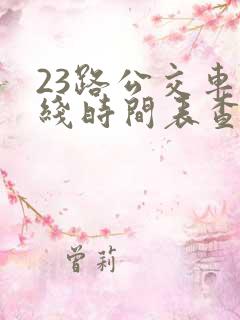 23路公交車
綫時間表查
曾莉